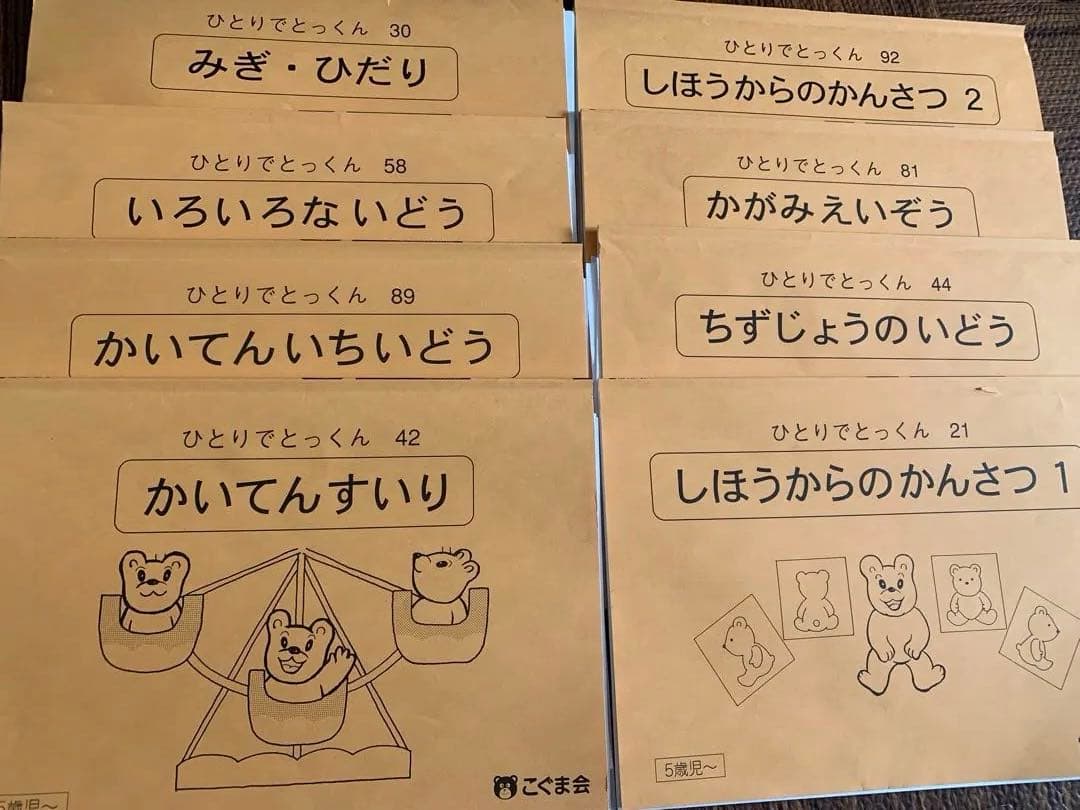 ひとりでとっくん 30
みぎ・ひだり
ひとりでとっくん 58
いろいろないどう
ひとりでとっくん 89
かいてんいちいどう
ひとりでとっくん 42
かいてんすいり
こぐま会
5歳児〜
ひとりでとっくん 92
しほうからのかんさつ 2
ひとりでとっくん 81
かがみえいぞう
ひとりでとっくん 44
ちずじょうのいどう
ひとりでとっくん 21
しほうからのかんさつ 1
5歳児〜